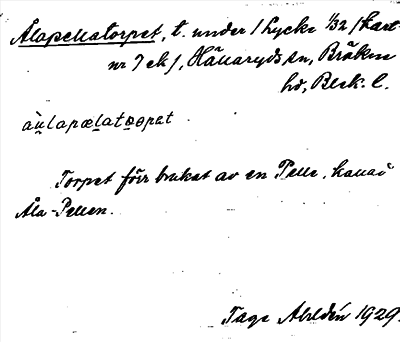 Ålapellatorpet, t. under 1 Lycke 1/32 (kart-
nr 7 ek), Hällaryds sn, Bräkne
hd, Blek. l.
àu̱lapælato̱rpet
Torpet förr brukat av en Pelle, kallad
Åla-Pellen.
Tage Ahldén 1929.